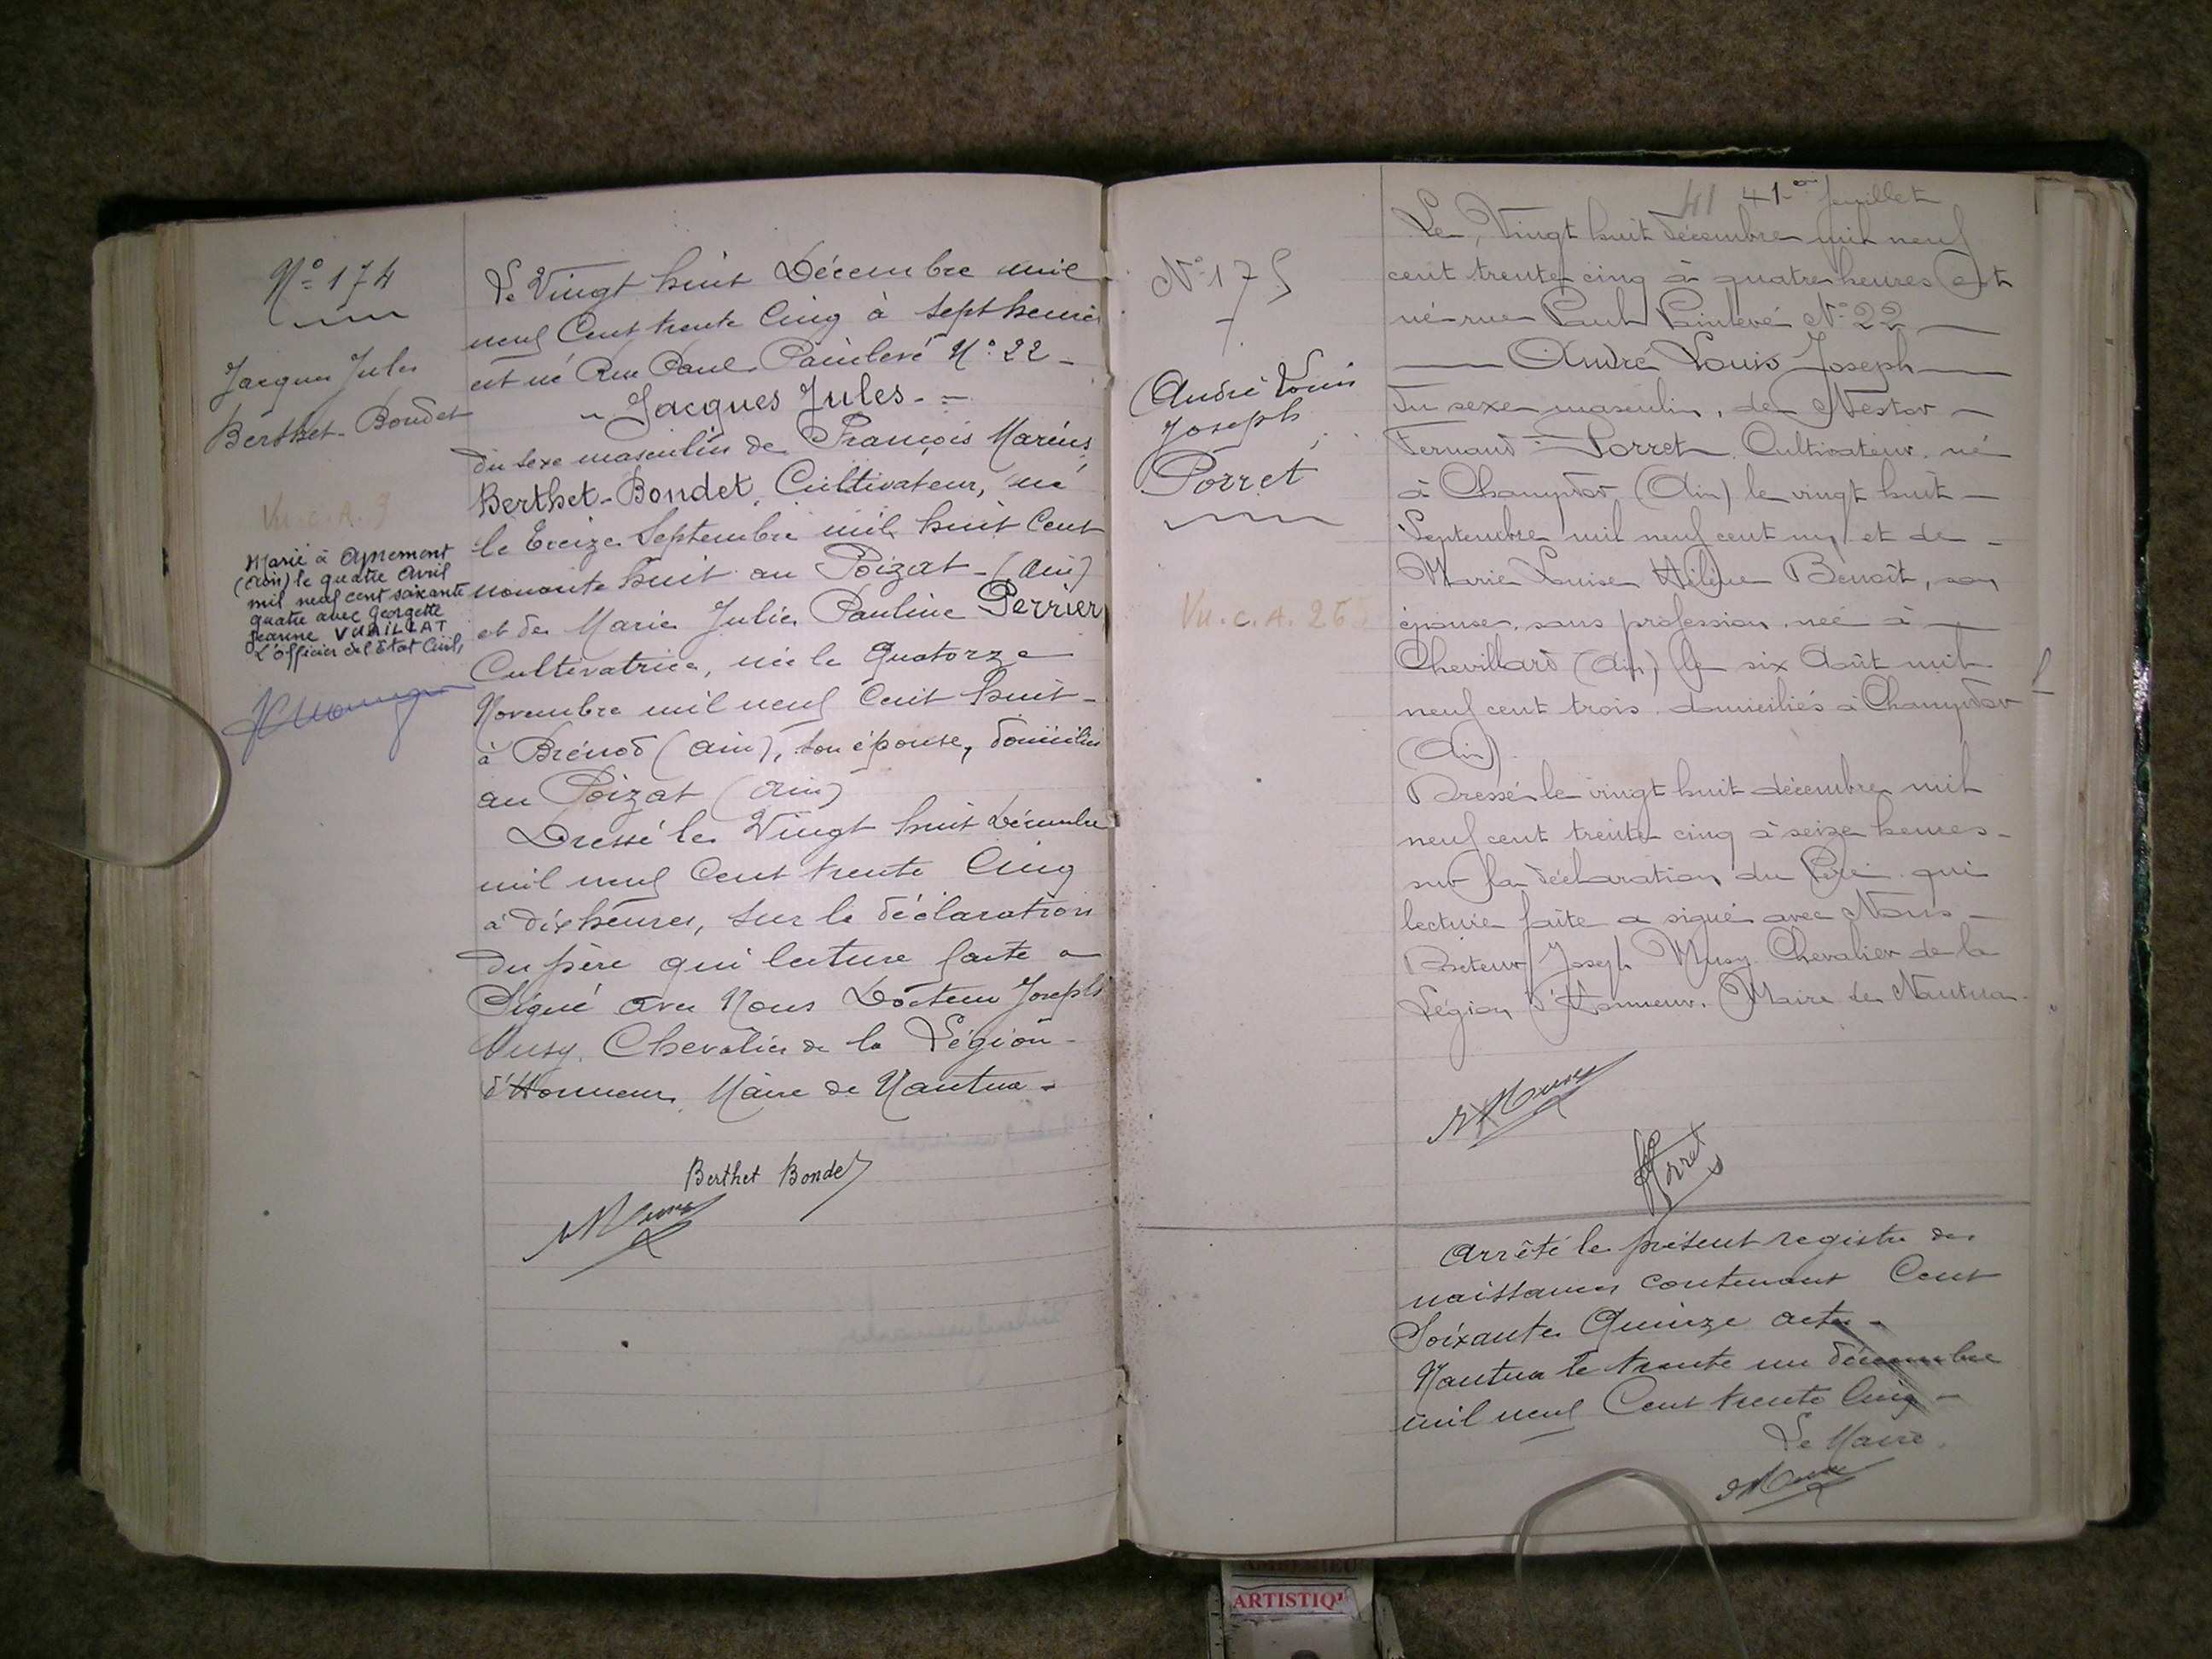 N° 174
Jacques Jules
Berthet-Bondet
Vu.C.A. 3
Marié à Apremont
(Ain) le quatre Avril
mil neuf cent soixante
quatre avec Georgette
Jeanne VUAILLAT
L'Officier de l'Etat Civil,
Le Vingt huit Décembre mil
neuf Cent trente Cinq à sept heures
est né Rue Paul Painlevé N° 22 -
- Jacques Jules - =
du sexe masculin de François Marius
Berthet-Bondet, Cultivateur, né
le Treize Septembre mil huit Cent
nonante huit au Poizat - (Ain)
et de Marie Julie Pauline Perrier
Cultivatrice, née le Quatorze
Novembre mil neuf Cent huit -
à Brénod (Ain), son épouse, domiciliés
au Poizat (Ain)
Dressé le Vingt huit Décembre
mil neuf Cent trente Cinq
à dix heures, sur la déclaration
du père qui lecture faite a
Signé avec Nous Docteur Joseph
Musy, Chevalier de la Légion -
d'Honneur, Maire de Nantua -
Berthet Bondet
41 41e feuillet
N° 175
André Louis
Joseph
Porret
Vu.C.A. 26
Le Vingt huit décembre mil neuf
cent trente cinq à quatre heures est
né rue Paul Painlevé N° 22 —
— André Louis Joseph —
du sexe masculin, de Nestor —
Fernand Porret, Cultivateur, né
à Champdor (Ain) le vingt huit —
Septembre mil neuf cent un et de -
Marie Louise Hélène Benoît, son
épouse, sans profession, née à —
Chevillard (Ain) le six Août mil
neuf cent trois, domiciliés à Champdor
(Ain).
Dressé le vingt huit décembre mil
neuf cent trente cinq à seize heures -
sur la déclaration du Père qui
lecture faite a signé avec Nous -
Docteur Joseph Musy Chevalier de la
Légion d'Honneur, Maire de Nantua -
Porret
Arrêté le présent registre des
naissances contenant Cent
Soixante Quinze actes -
Nantua le trente un décembre
mil neuf Cent trente Cinq -
Le Maire,
ARTISTIQ